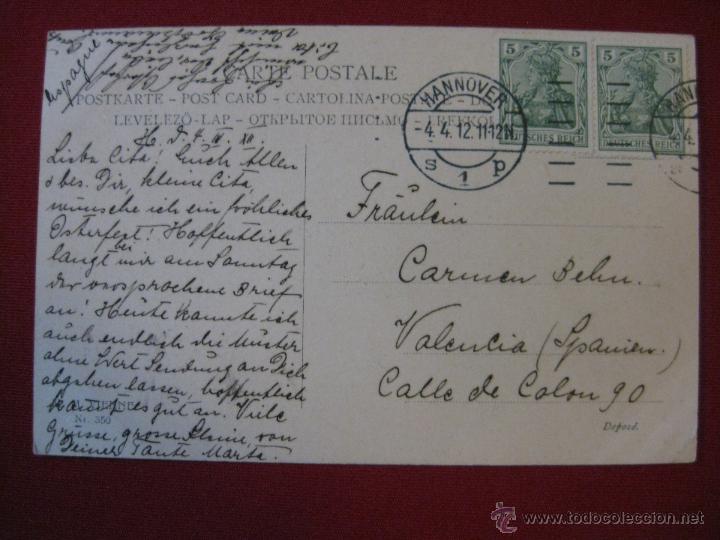 Espagne
CARTE POSTALE
POSTKARTE – POST CARD – CARTOLINA-POSTALE
LEVELEZŐ-LAP – ОТКРЫТОЕ ПИСЬМО –
HANNOVER
-4.4.12.11-12N.
s 1 p
5 5
DEUTSCHES REICH
5 5
H. D. 4. IV. XII.
Liebe Cita! Euch Allen
& bes. Dir, kleine Cita,
wünsche ich ein fröhliches
Osterfest! Hoffentlich
langt bei mir am Sonntag
der versprochene Brief
an! Heute konnte ich
auch endlich die Muster
ohne Wert Sendung an Dich
abgehen lassen, hoffentlich
kommt es gut an. Viele
Grüsse, grosse Kleine, von
Deiner Tante Marta.
Nr. 350
Fräulein
Carmen Behn.
Valencia (Spanien.)
Calle de Colon 90
Deposé.
todocoleccion
www.todocoleccion.net